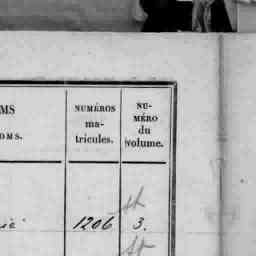 MS
OMS.
NUMÉROS
ma-
tricules.
NU-
MÉRO
du
Volume.
1206 3.